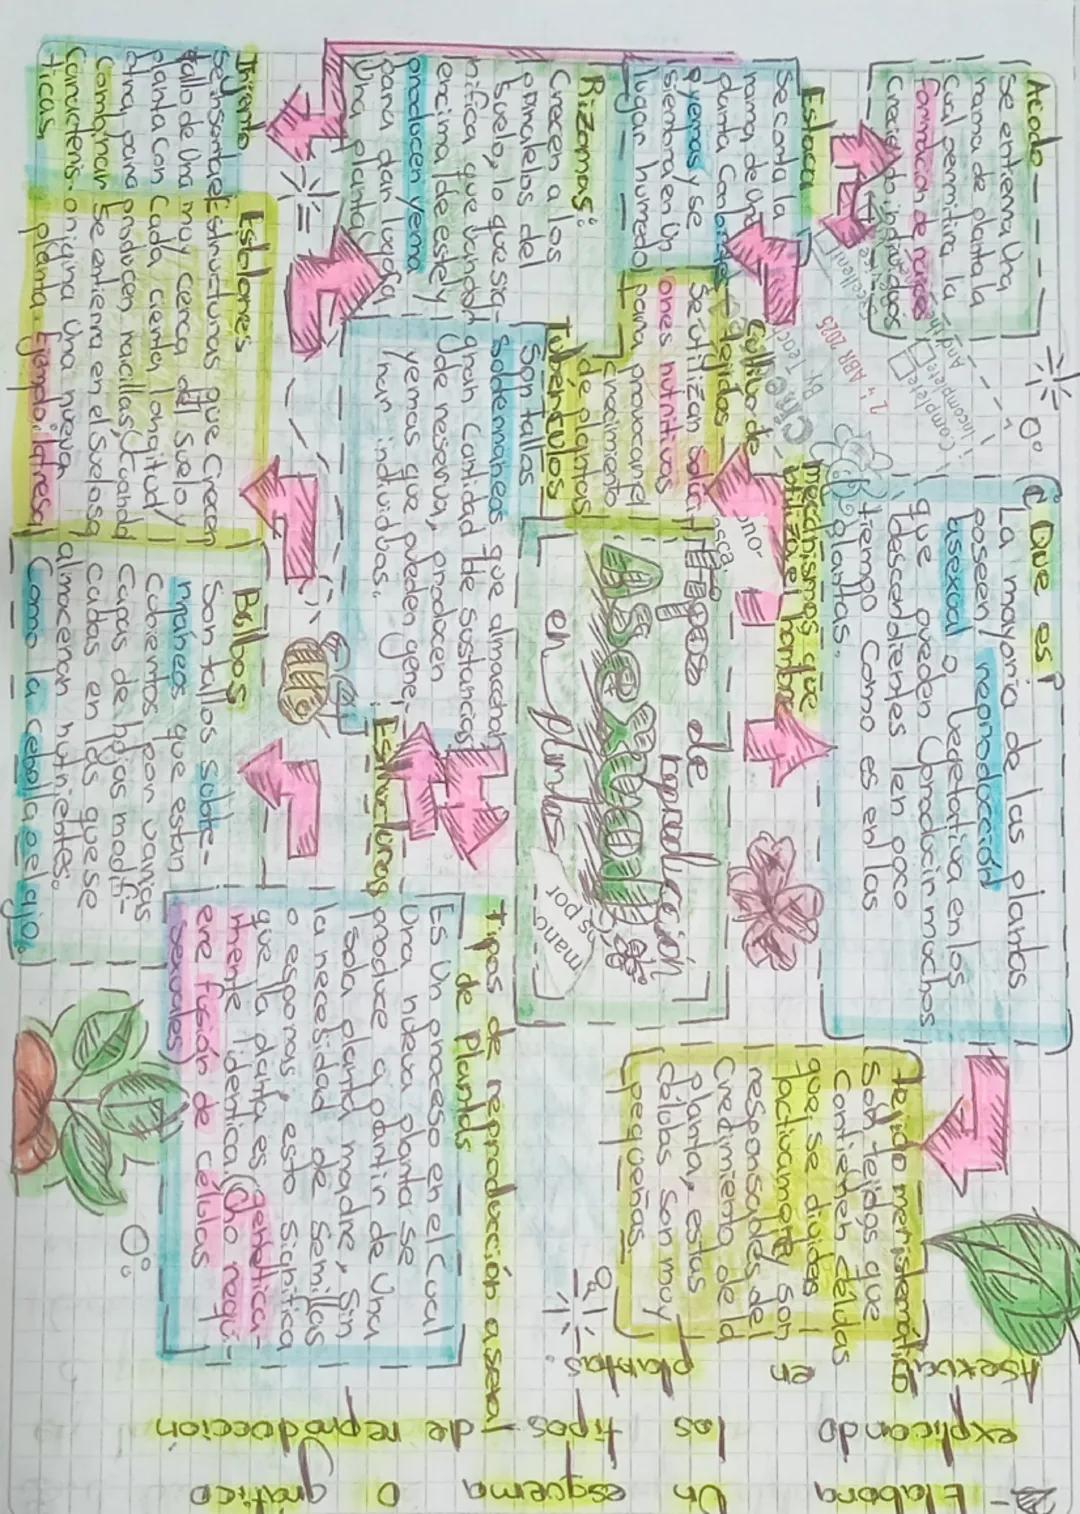 2- Elabora un esquema o gráfico
explicando los tipos de reproducción
Asexual en plantas.
¿Que es?
La mayoría de las plantas
poseen reproducción
asexual o vegetativa en los
que pueden producir muchos
descenddientes en poco
tiempo como es en las
plantas.
tejido meristemático
Son tejidos que
contienen células
que se dividen
activamente son
responsables del
crecimiento de la
planta, estas
células son muy
pequeñas.
Tipos de
reproducción
Asexual
en plantas
mecanismos que
utiliza el hombre
Acodo
Se entierra una
rama de planta la
cual permitira la
formación de raices
creciendo individuos
Estaca
Se corta la
rama de una
planta con
yemas y se
siembra en un
lugar humedo
Cultivo de
tejidos
Se utilizan
ones nutritivos
para provocar el
crecimiento
de plantas
Complete
Incomplete
Excellent
24 ABR 2025
By Teac
Rizomas:
Crecen a los
paralelos del
suelo, lo que sig-
nifica que van por
encima de este y
producen yema
para dar luega
una planta
Tubérculos
Son tallos
subterraneos que almacenan
gran cantidad de sustancias
de reserva, producen
yemas que pueden gene-
rar individuos.
Estructuras
tipos de reproducción asexual
de plantas
Es un proceso en el cual
una nueva planta se
produce a partir de una
sola planta madre, sin
la necesidad de semillas
o esporas, esto significa
que la planta es genetica-
mente identica. (no requi-
ere fusión de células
sexuales)
Injerto
Se inserta el
tallo de una
planta con
otra para
combinar
caracteris-
ticas
Estolones
Estructuras que crecen
muy cerca del suelo y
cada cierta longitud
producen raicillas, cuando
se entierra en el suelo se
origina una nueva
planta. Ejemplo: la fresa
Bulbos
Son tallos subte-
rráneos que están
cubiertos por varias
capas de hojas modifi-
cadas en las que se
almacenan nutrientes.
Como la cebolla o el ajo.